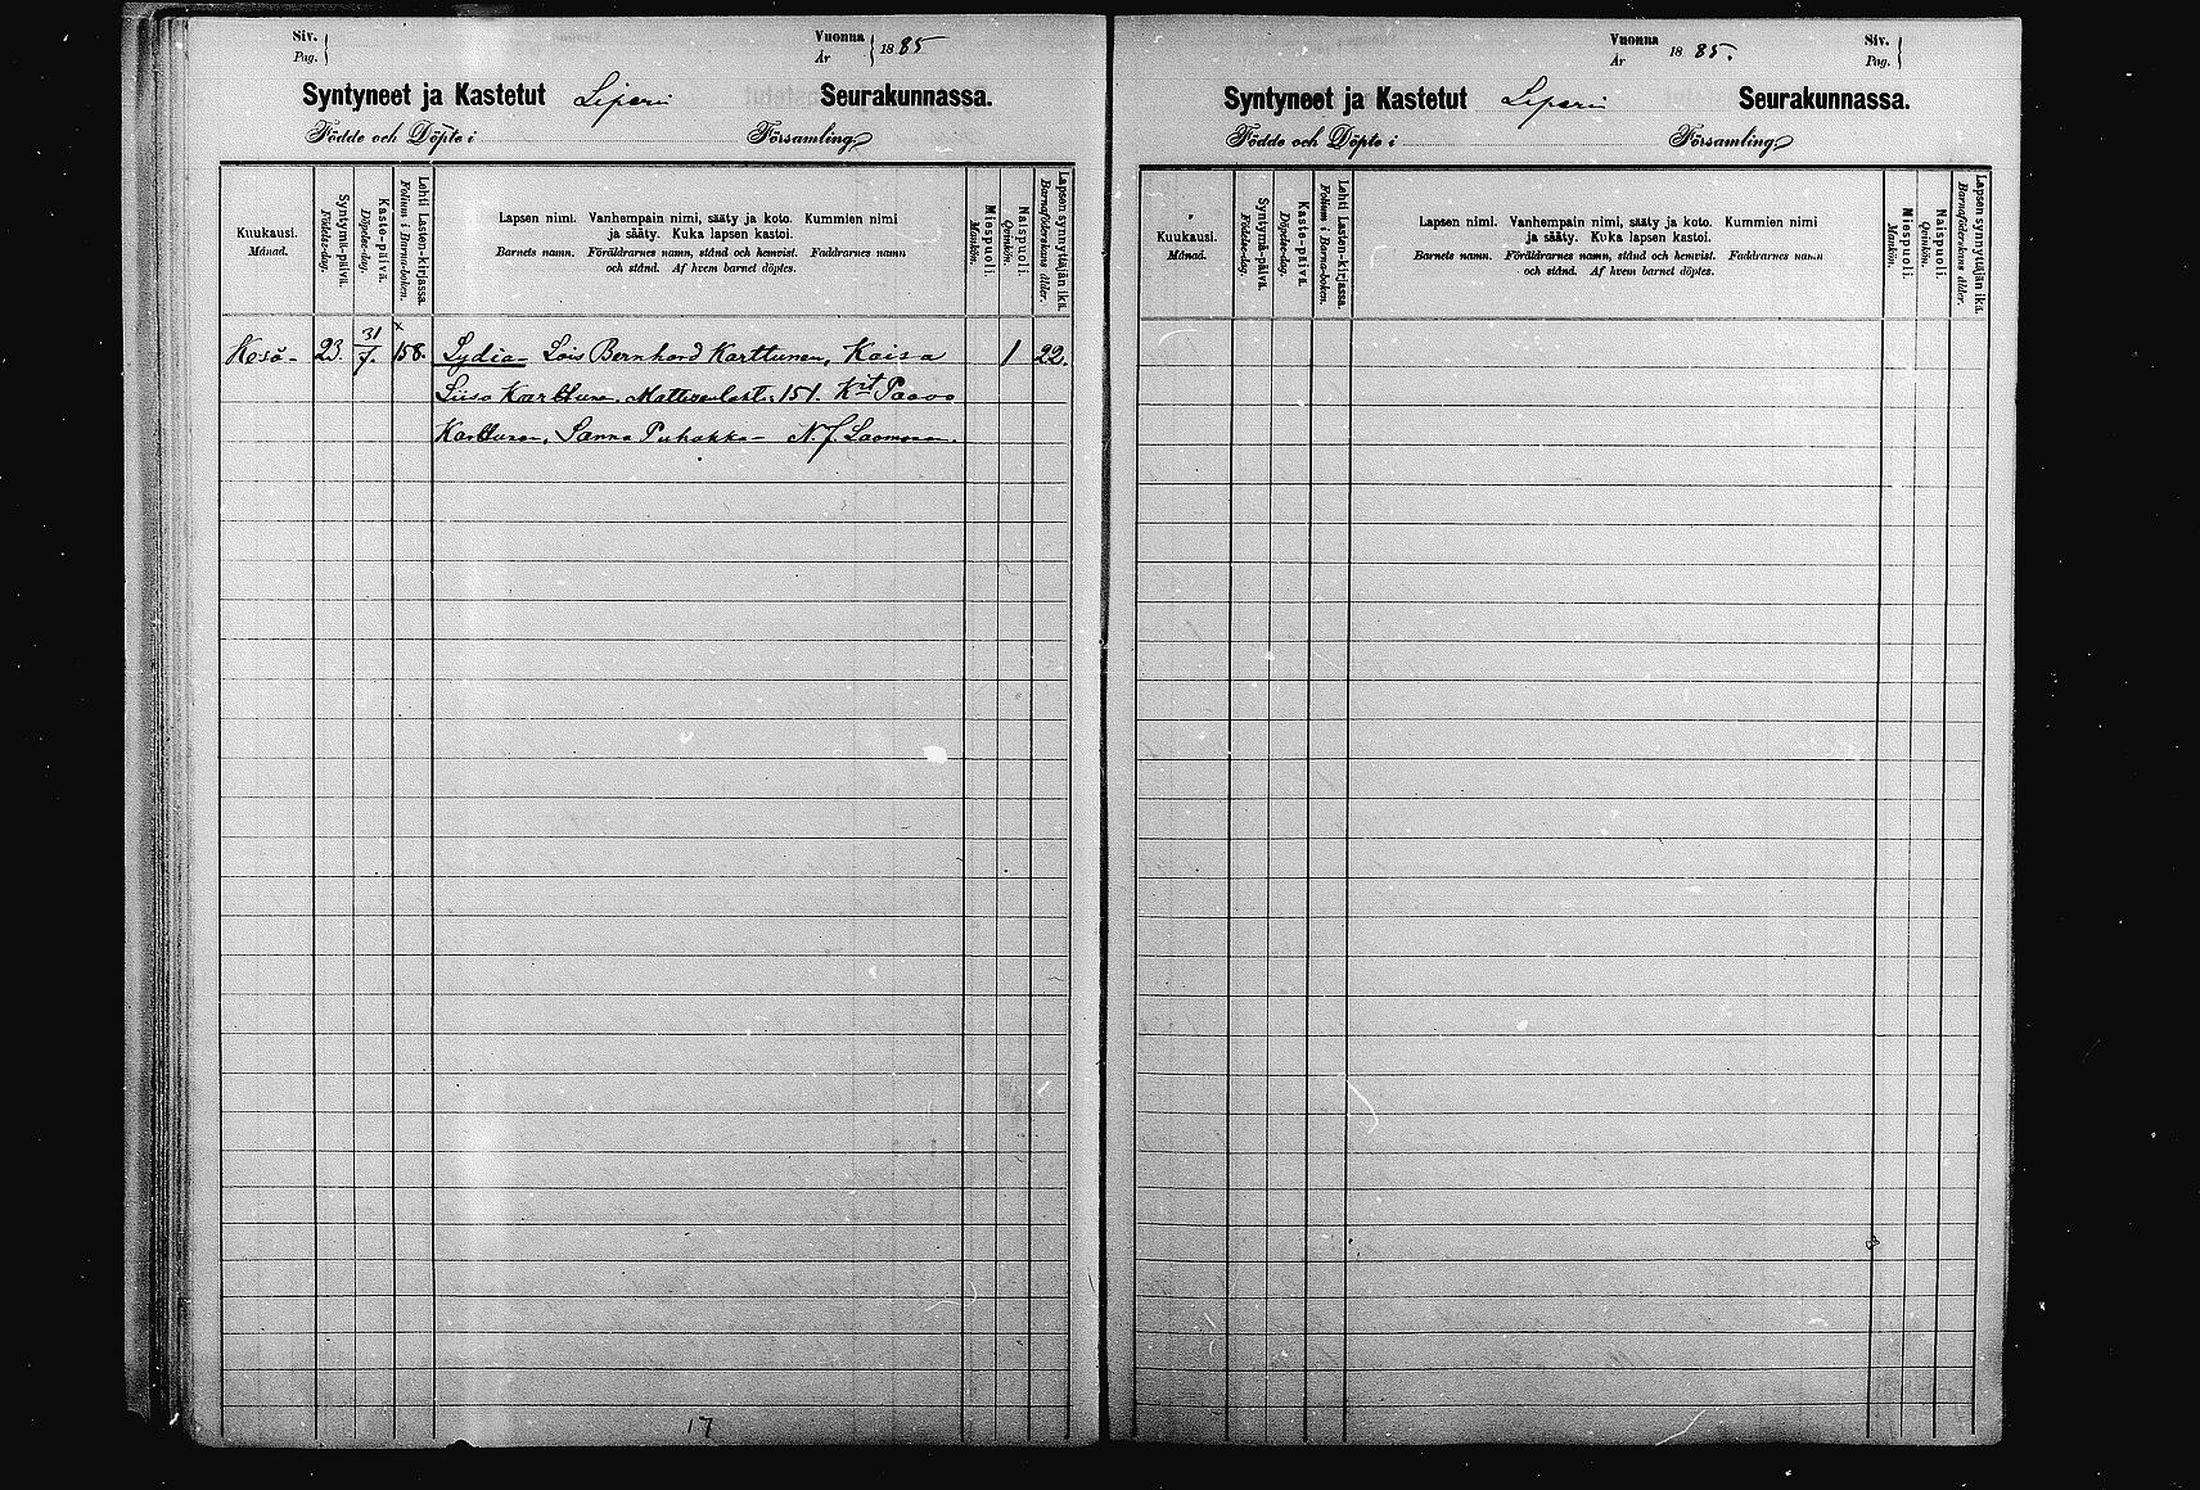 Siv.
Pag.
Vuonna
År
1885
Syntyneet ja Kastetut Liperi Seurakunnassa.
Födde och Döpte i Församling
Kuukausi.
Månad.
Syntymä-päivä.
Födelse-dag.
Kaste-päivä.
Döpelse-dag.
Lehti Lasten-kirjassa.
Folium i Barna-boken.
Lapsen nimi. Vanhempain nimi, sääty ja koto. Kummien nimi
ja sääty. Kuka lapsen kastoi.
Barnets namn. Föräldrarnes namn, stånd och hemvist. Faddrarnes namn
och stånd. Af hvem barnet döptes.
Miespuoli.
Mankön.
Naispuoli.
Qvinkön.
Lapsen synnyttäjän ikä.
Barnaföderskans ålder.
Kesä- 23. 31/7. 158. Lydia- Lois Bernhard Karttunen, Kaisa 1 22.
Liisa Karttunen. 151. Krt Paavo
Karttunen, Sanna Puhakka - N. J.
17
Vuonna
År
1885.
Siv.
Pag.
Syntyneet ja Kastetut Liperi Seurakunnassa.
Födde och Döpte i Församling
Kuukausi.
Månad.
Syntymä-päivä.
Födelse-dag.
Kaste-päivä.
Döpelse-dag.
Lehti Lasten-kirjassa.
Folium i Barna-boken.
Lapsen nimi. Vanhempain nimi, sääty ja koto. Kummien nimi
ja sääty. Kuka lapsen kastoi.
Barnets namn. Föräldrarnes namn, stånd och hemvist. Faddrarnes namn
och stånd. Af hvem barnet döptes.
Miespuoli.
Mankön.
Naispuoli.
Qvinkön.
Lapsen synnyttäjän ikä.
Barnaföderskans ålder.